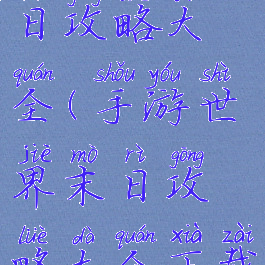 日攻略大
quán shǒu yóu shì
全(手游世
jiè mò rì gōng
界末日攻
lüè dà quán xià zài
略大全下载